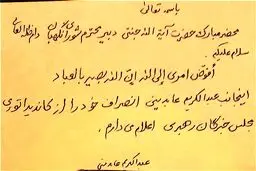 باسمه تعالی
محضر مبارک حضرت آیة الله جنتی دبیر محترم شورای نگهبان دام ظله العالی
سلام علیکم
أفوّض امری إلی الله إنّ الله بصیر بالعباد
اینجانب عبدالکریم عابدینی انصراف خود را از کاندیداتوری
مجلس خبرگان رهبری اعلام می دارم.
عبدالکریم عابدینی